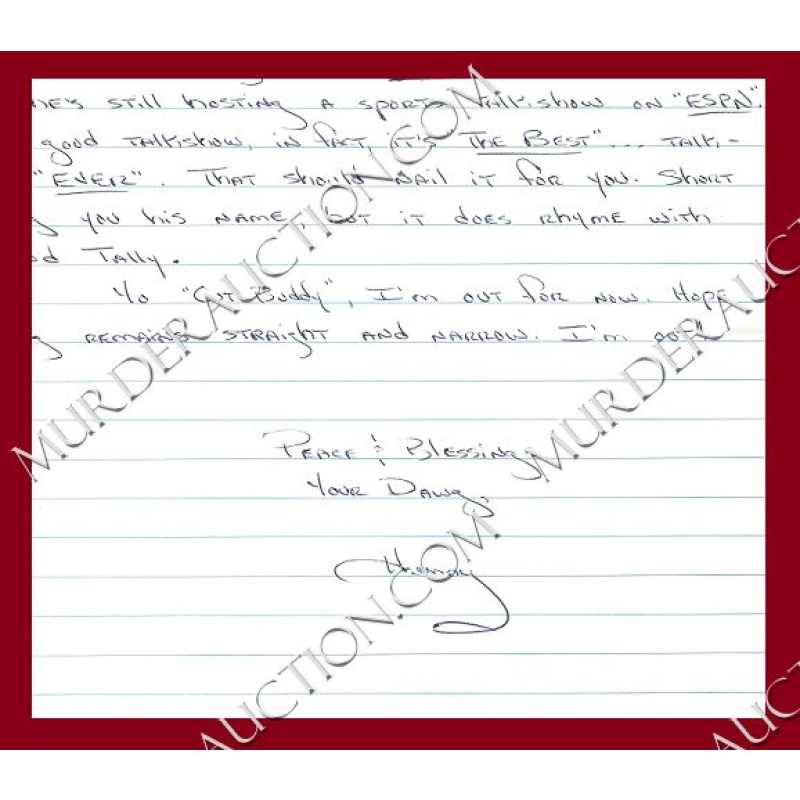 HE'S STILL HOSTING A SPORTS TALKSHOW ON "ESPN".
good TALKSHOW, IN FACT, IT'S "THE BEST"... TALK-
"EVER". THAT SHOULD NAIL IT FOR YOU. SHORT
YOU HIS NAME, BUT IT DOES RHYME WITH
TALLY.
YO "CUT BUDDY", I'M OUT FOR NOW. HOPE
REMAINS STRAIGHT AND NARROW. I'M OUT
PEACE & BLESSINGS
YOUR DAWG,
MURDERAUCTION.COM
MURDERAUCTION.COM
AUCTION.COM
AUC